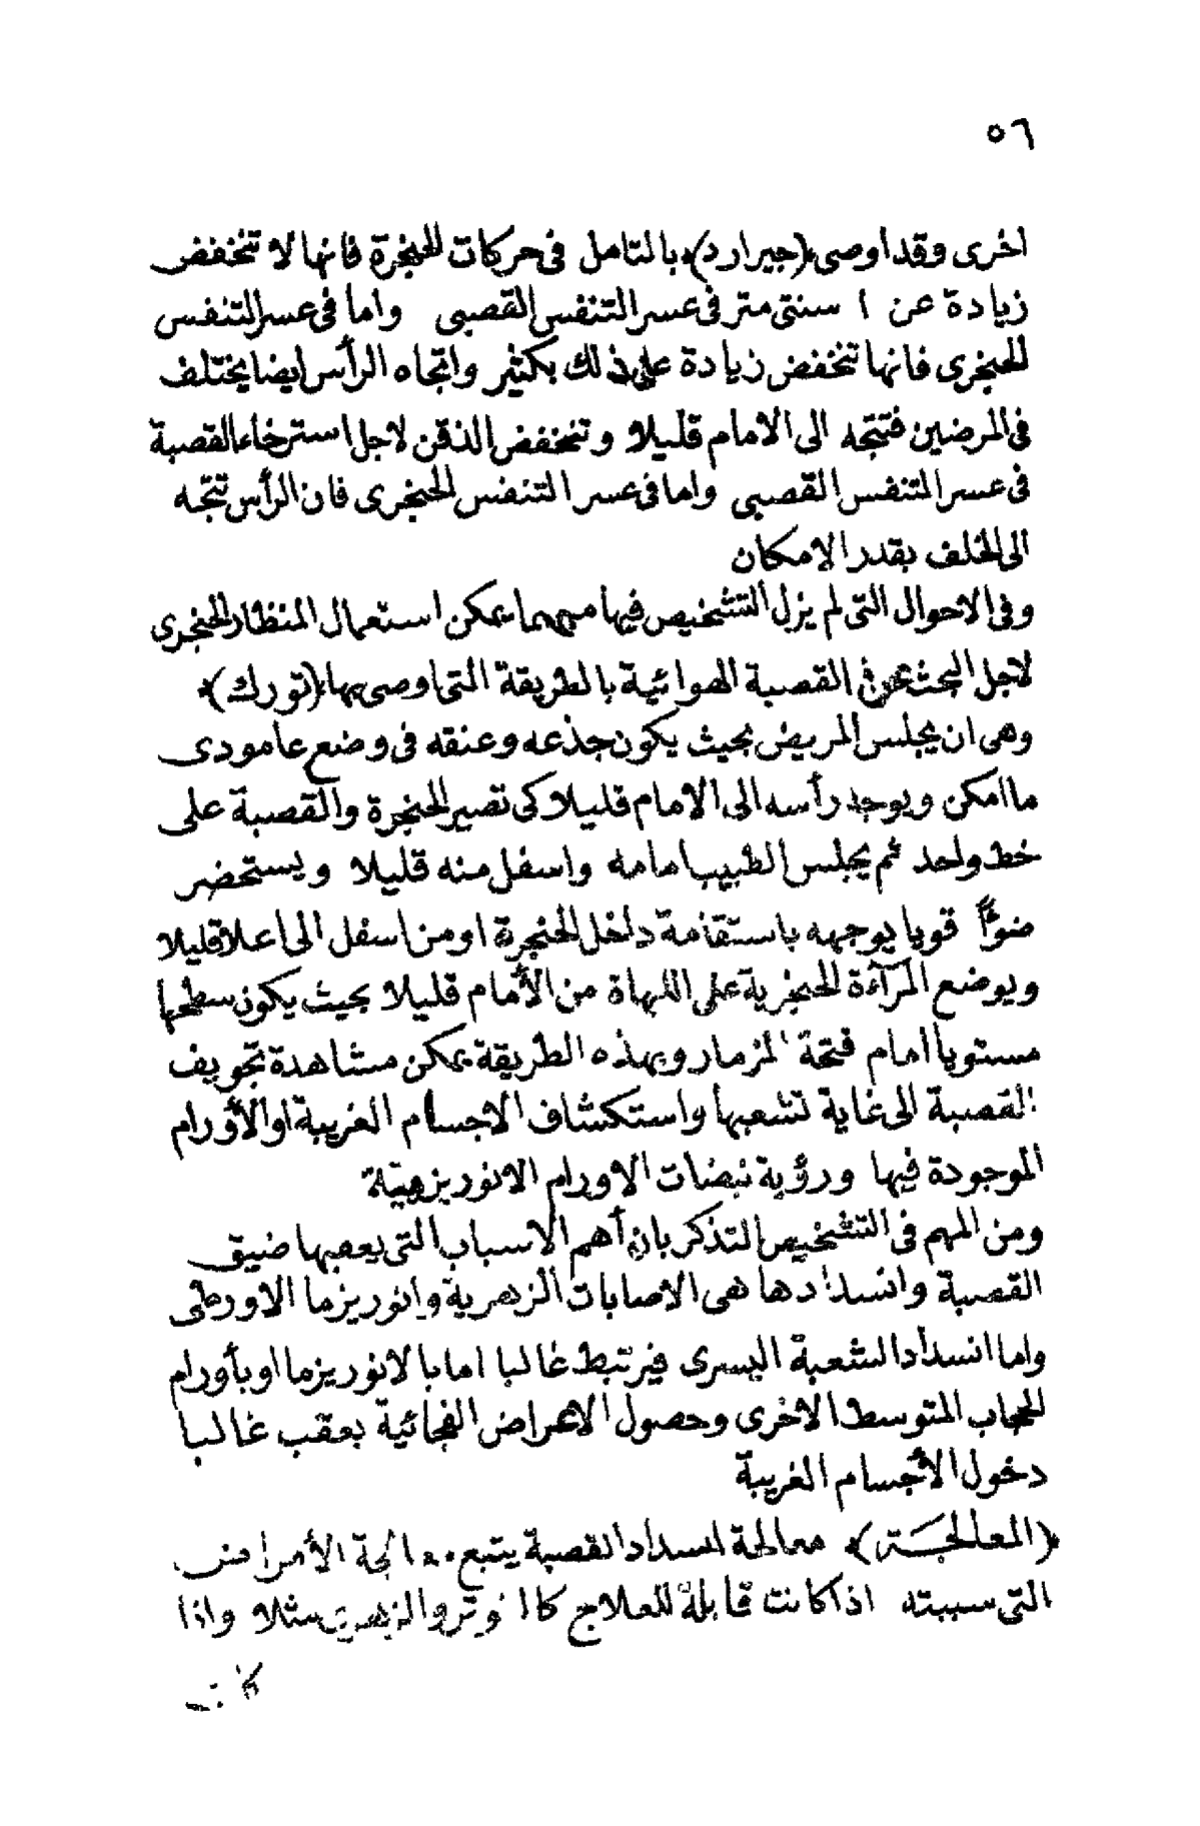 ٥٦
اخرى وقد اوصى (جيرارد) بالتامل فى حركات الحنجرة فانها لا تنخفض
زيادة عن ١ سنتى متر فى عسر التنفس القصبى واما فى عسر التنفس
الحنجرى فانها تنخفض زيادة على ذلك بكثير واتجاه الرأس ايضا يختلف
فى المرضين فتتجه الى الامام قليلا وتنخفض الذقن لاجل استرخاء القصبة
فى عسر التنفس القصبى واما فى عسر التنفس الحنجرى فان الرأس تتجه
الى الخلف بقدر الامكان
وفى الاحوال التى لم يزل التشخيص فيها مبهما يمكن استعمال المنظار الحنجرى
لاجل البحث عن فى القصبة الهوائية بالطريقة التى اوصى بها (تورك)
وهى ان يجلس المريض بحيث يكون جذعه وعنقه فى وضع عامودى
ما امكن ويوجه رأسه الى الامام قليلا كى تصير الحنجرة والقصبة على
خط واحد ثم يجلس الطبيب امامه واسفل منه قليلا ويستحضر
ضوأً قويا يوجهه باستقامة داخل الحنجرة او من اسفل الى اعلا قليلا
ويوضع المرآءة الحنجرية على اللهاة من الأمام قليلا بحيث يكون سطحها
مستويا أمام فتحة المزمار وبهذه الطريقة يمكن مشاهدة تجويف
القصبة الى غاية تشعبها واستكشاف الاجسام الغريبة او الأورام
الموجودة فيها ورؤية نبضات الاورام الانوريزمية
ومن المهم فى التشخيص التذكر بان أهم الاسباب التى يعصبها ضيق
القصبة وانسدادها هى الاصابات الزهرية وانوريزما الاورطى
واما انسداد الشعبة اليسرى فيرتبط غالبا اما بالانوريزما او بأورام
الحجاب المتوسط الاخرى وحصول الاعراض الفجائية بعقب غالبا
دخول الأجسام الغريبة
(المعالجة) معالجة انسداد القصبة يتبع معالجة الأمراض
التى سببته اذا كانت قابلة للعلاج كالغوتر والزهرى مثلا واذا
كانت